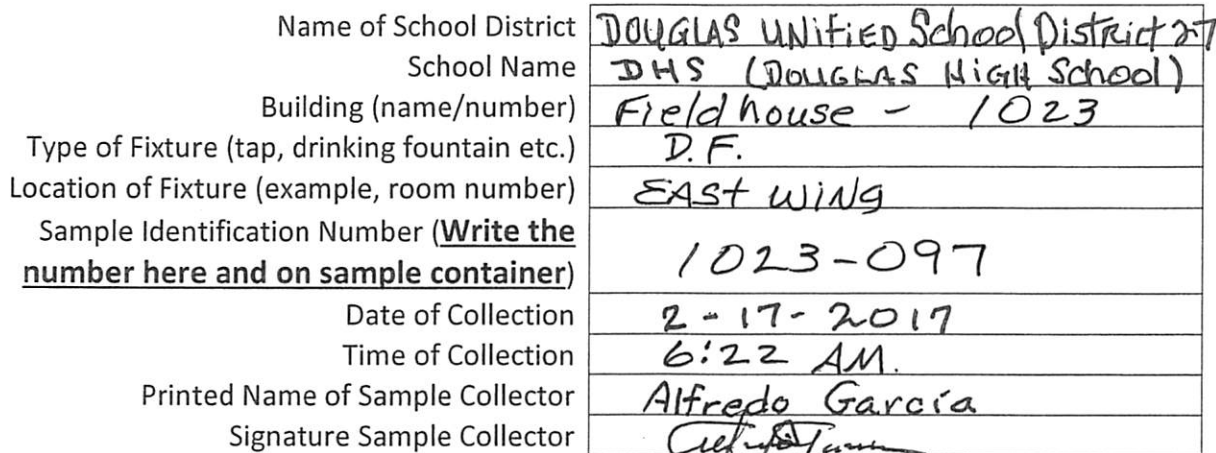 Name of School District DOUGLAS UNIFIED School District 27
School Name DHS (DOUGLAS HIGH School)
Building (name/number) Fieldhouse - 1023
Type of Fixture (tap, drinking fountain etc.) D.F.
Location of Fixture (example, room number) EAST WING
Sample Identification Number (Write the
number here and on sample container) 1023-097
Date of Collection 2-17-2017
Time of Collection 6:22 AM.
Printed Name of Sample Collector Alfredo García
Signature Sample Collector